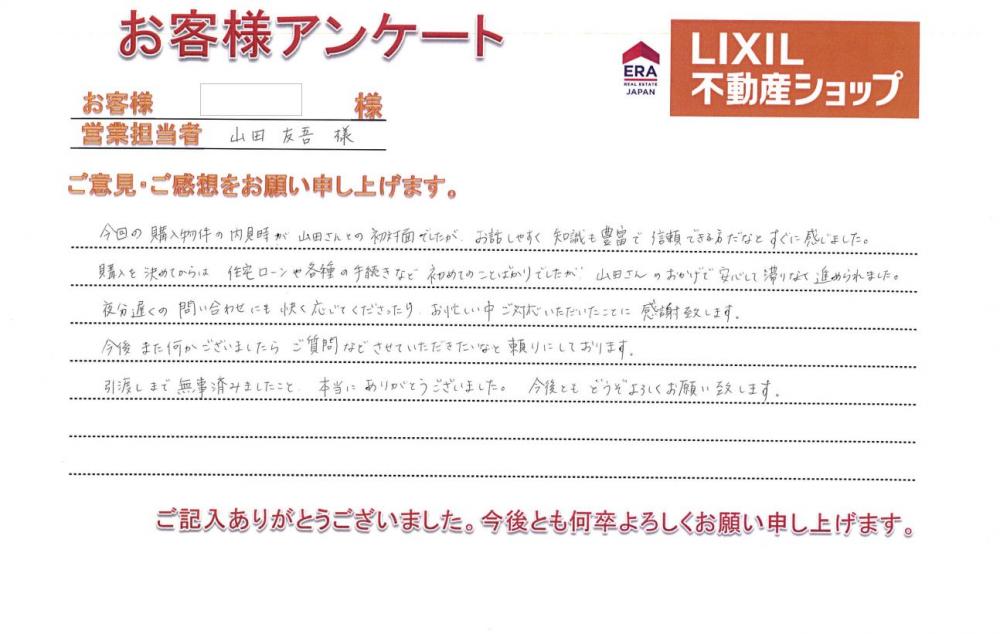 お客様アンケート
ERA
REAL ESTATE
JAPAN
LIXIL
不動産ショップ
お客様 様
営業担当者 山田 友吾 様
ご意見・ご感想をお願い申し上げます。
今回の 購入物件の内見時が 山田さんとの 初対面でしたが、お話しやすく 知識も豊富で 信頼できる方だなと すぐに感じました。
購入を決めてからは 住宅ローンや各種の手続きなど 初めてのことばかりでしたが 山田さんのおかげで安心して滞りなく進められました。
夜分遅くの 問い合わせにも 快く応じてくださったり、お忙しい中 ご対応いただいたことに 感謝致します。
今後 また何かございましたら ご質問などさせていただきたいなと 頼りにしております。
引渡しまで 無事済みましたこと、本当に ありがとうございました。 今後とも どうぞよろしくお願い致します。
ご記入ありがとうございました。今後とも何卒よろしくお願い申し上げます。